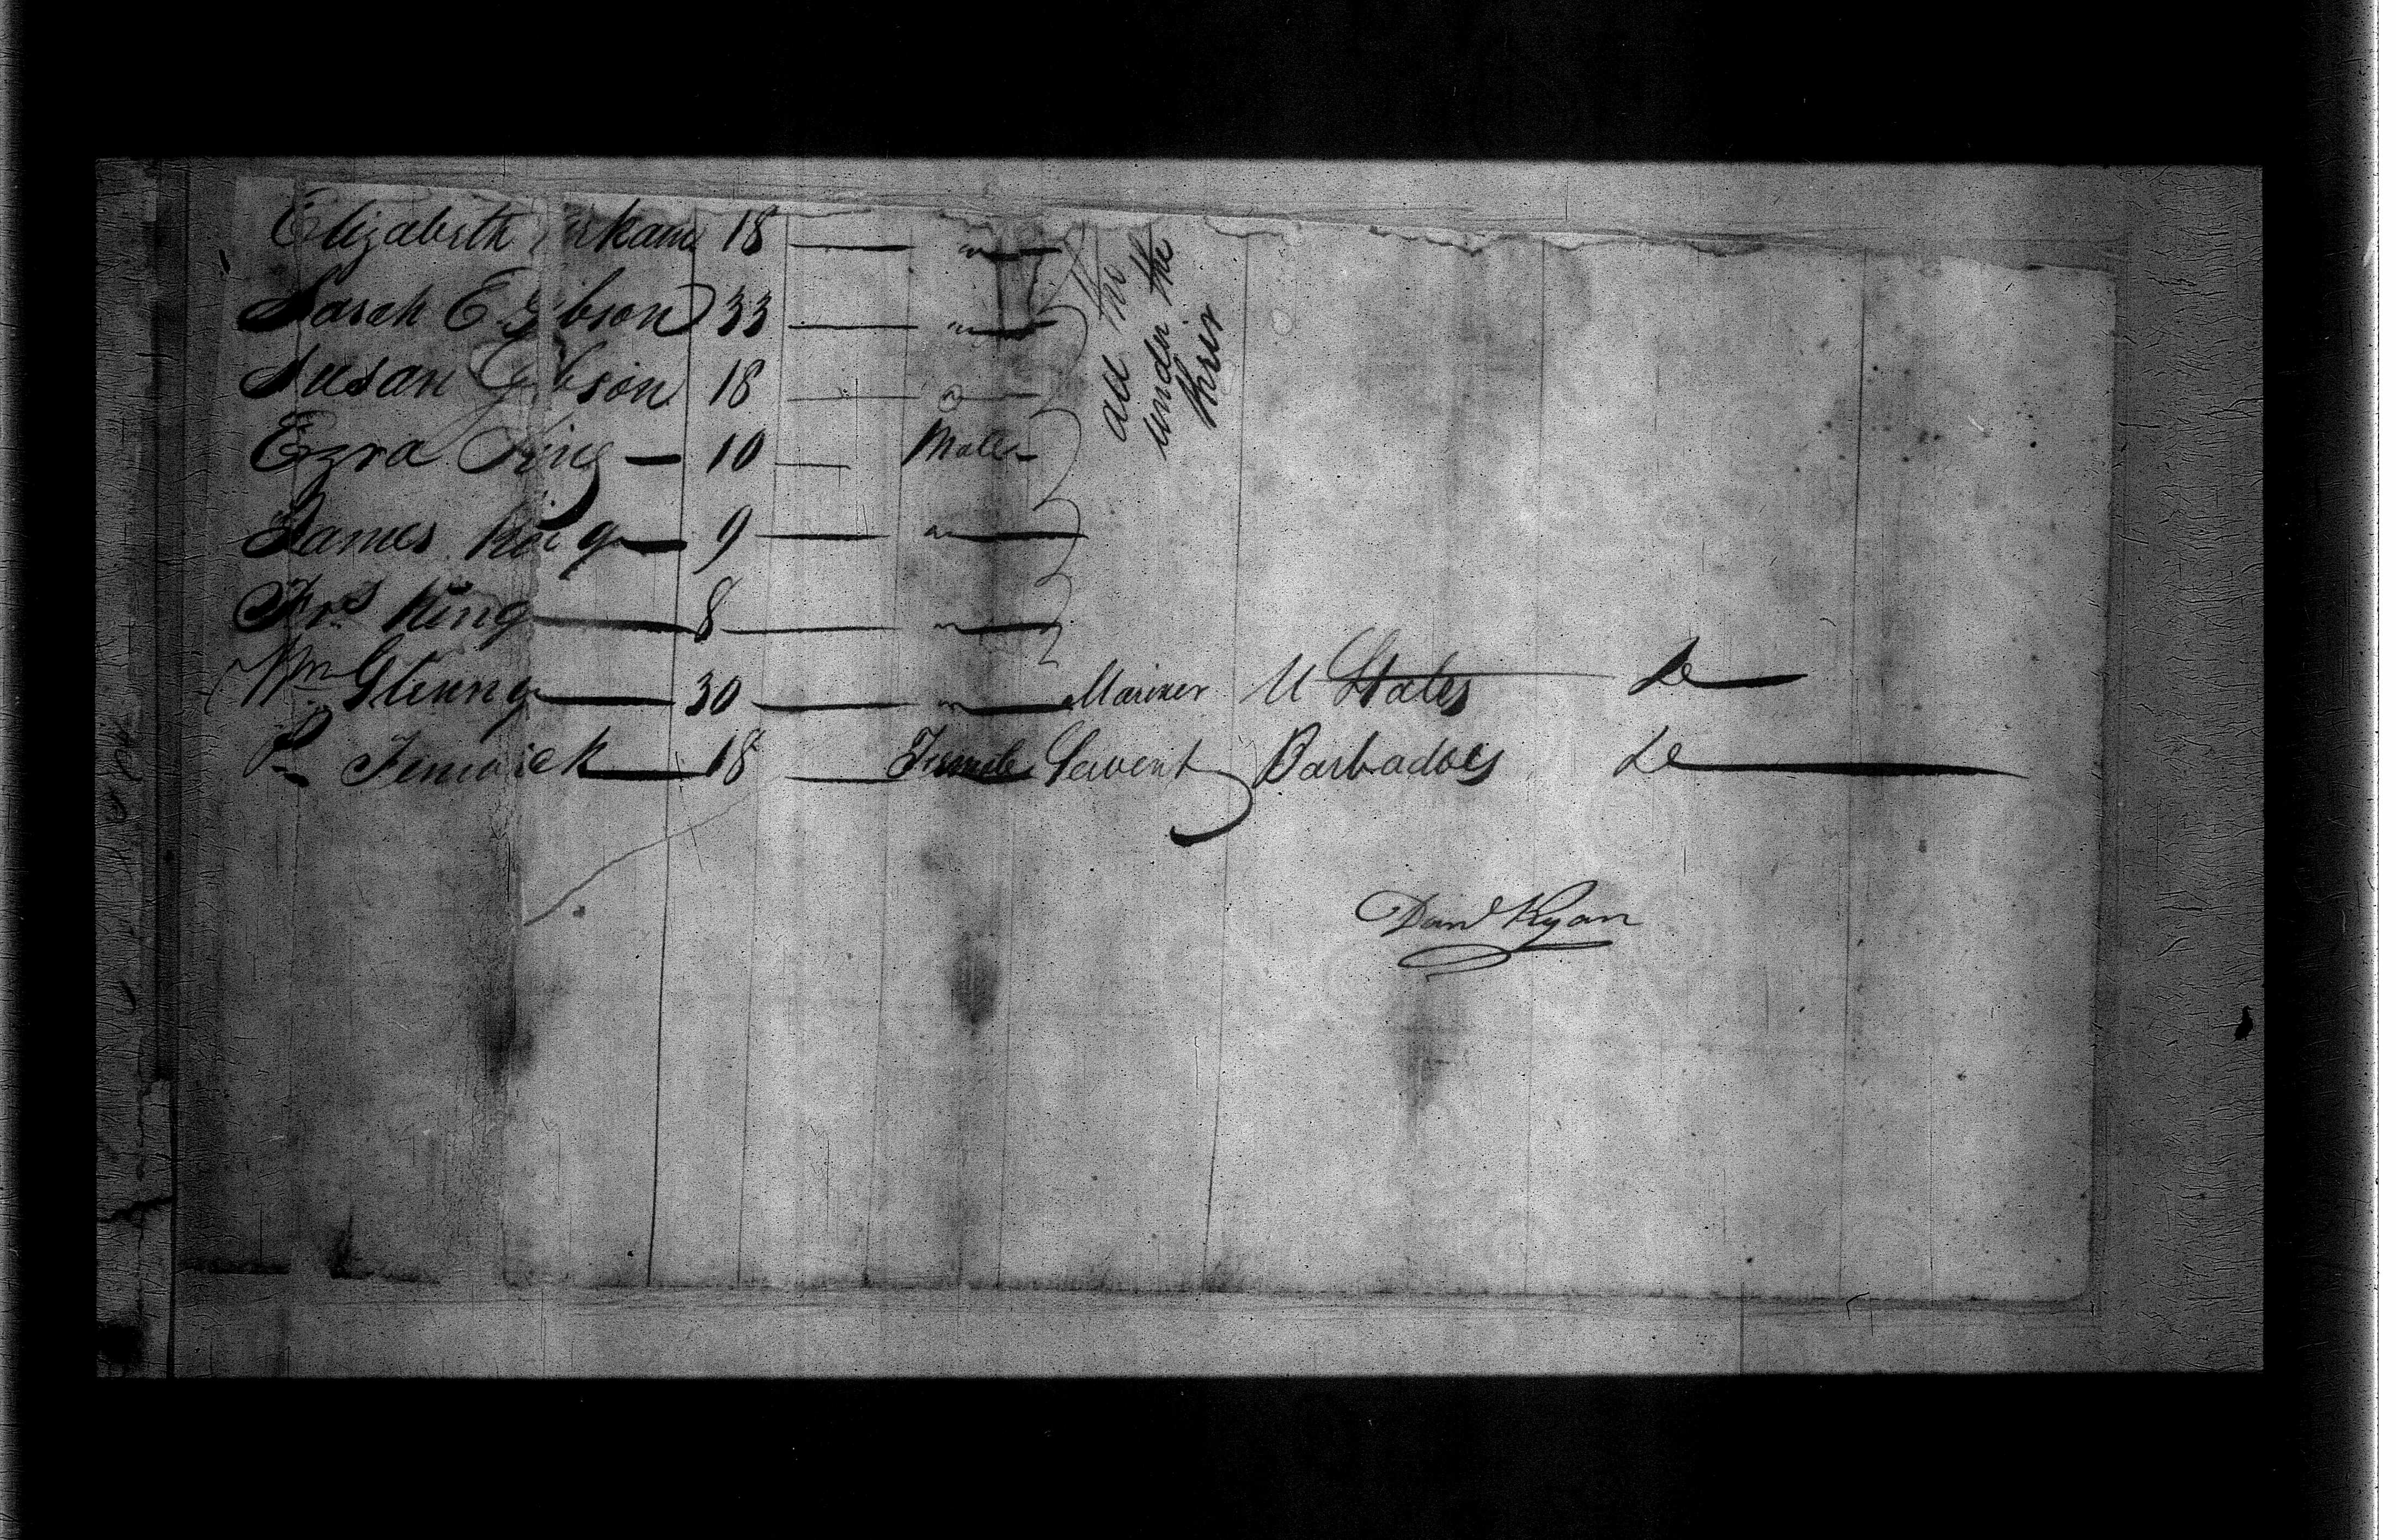 Elizabeth 18 — " —
Sarah E Gibson 33 — " —
Susan Gibson 18 — " —
Ezra King — 10 — Male
James King — 9 — " —
Frs King — 8 — " —
Wm Glenny — 30 — " — Mariner U States do —
P. Fenwick — 18 — Female Servent Barbadoes do —
all the
under the
their
Danl Ryan